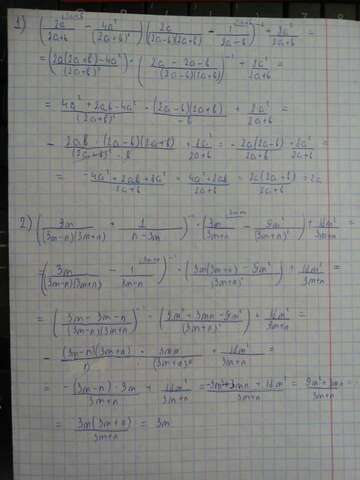 1) (2a/(2a+b) - 4a²/(2a+b)²) (2a/((2a-b)(2a+b)) - 1/(2a-b))⁻¹ + 8a²/(2a+b) =
= (2a(2a+b)-4a²)/(2a+b)² · ((2a-2a-b)/((2a-b)(2a+b)))⁻¹ + 8a²/(2a+b)
= (4a²+2ab-4a²)/(2a+b)² · ((2a-b)(2a+b))/(-b) + 8a²/(2a+b) =
- (2ab · (2a-b)(2a+b))/((2a+b)² · b) + 8a²/(2a+b) = - 2a(2a-b)/(2a+b) + 8a²/(2a+b) =
= (-4a²+2ab+8a²)/(2a+b) = (4a²+2ab)/(2a+b) = 2a(2a+b)/(2a+b) = 2a
2) (3m/((3m-n)(3m+n)) + 1/(n-3m))⁻¹ · (3m/(3m+n) - 9m²/(3m+n)²) + 18m²/(3m+n) =
= (3m/((3m-n)(3m+n)) - 1/(3m-n))⁻¹ · (3m(3m+n) - 9m²)/(3m+n)² + 18m²/(3m+n) =
= ((3m-3m-n)/((3m-n)(3m+n)))⁻¹ · (9m²+3mn-9m²)/(3m+n)² + 18m²/(3m+n) =
- ((3m-n)(3m+n))/n · 3mn/(3m+n)² + 18m²/(3m+n) =
= (-(3m-n)·3m)/(3m+n) + 18m²/(3m+n) = (-9m²+3mn+18m²)/(3m+n) = (9m²+3mn)/(3m+n) =
= 3m(3m+n)/(3m+n) = 3m